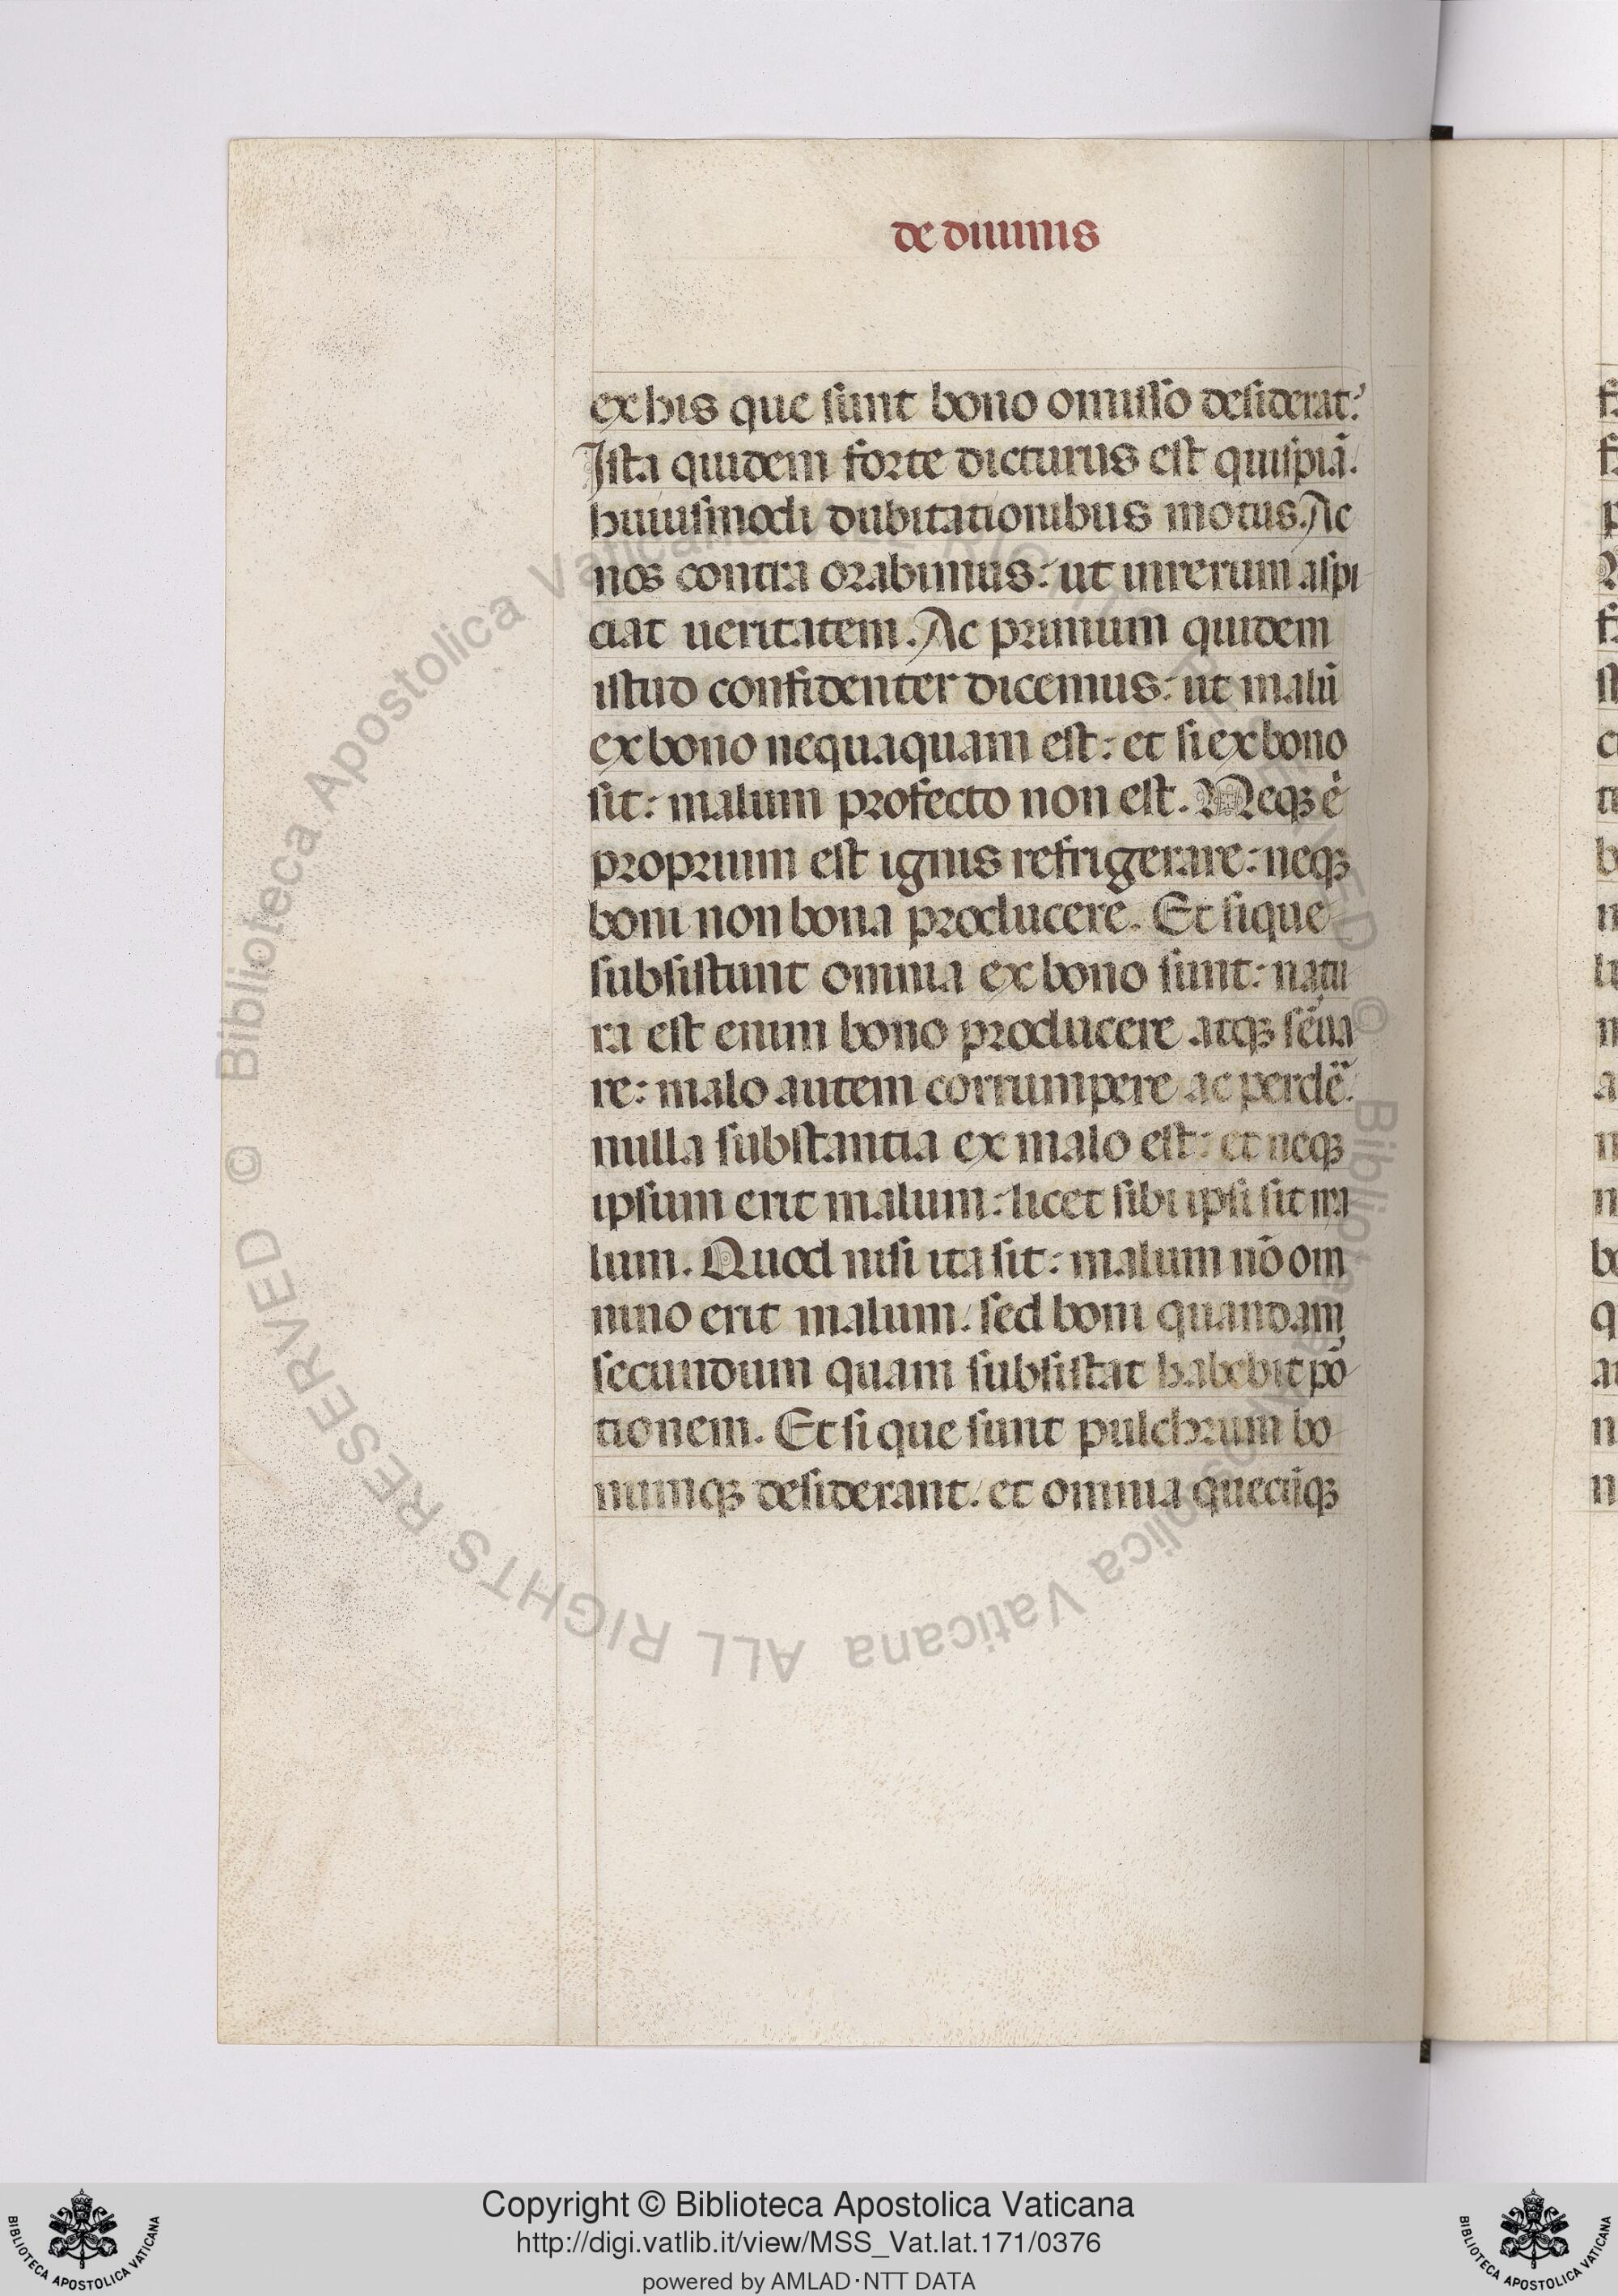 de diuinis
ex his que sunt bono omisso desiderat?
Ista quidem forte dicturus est quispiã.
huiusmodi dubitationibus motus. Ac
nos contra orabimus: ut in rerum aspi
ciat ueritatem. Ac primum quidem
istud confidenter dicemus: ut malũ
ex bono nequaquam est: et si ex bono
sit: malum profecto non est. Neqꝫ ẽ
proprium est ignis refrigerare: neqꝫ
boni non bona producere. Et si que
subsistunt omnia ex bono sunt: natu
ra est enim bono producere atqꝫ sẽua
re: malo autem corrumpere ac perdẽ.
nulla substantia ex malo est: et neqꝫ
ipsum erit malum: licet sibi ipsi sit ma
lum. Quod nisi ita sit: malum nõ om
nino erit malum. sed boni quandam
secundum quam subsistat habebit põ
tionem. Et si que sunt pulchrum bo
numqꝫ desiderant. et omnia quecũqꝫ
© Biblioteca Apostolica Vaticana ALL RIGHTS RESERVED
© Biblioteca Apostolica Vaticana ALL RIGHTS RESERVED
Copyright © Biblioteca Apostolica Vaticana
http://digi.vatlib.it/view/MSS_Vat.lat.171/0376
powered by AMLAD·NTT DATA
BIBLIOTECA APOSTOLICA VATICANA
BIBLIOTECA APOSTOLICA VATICANA